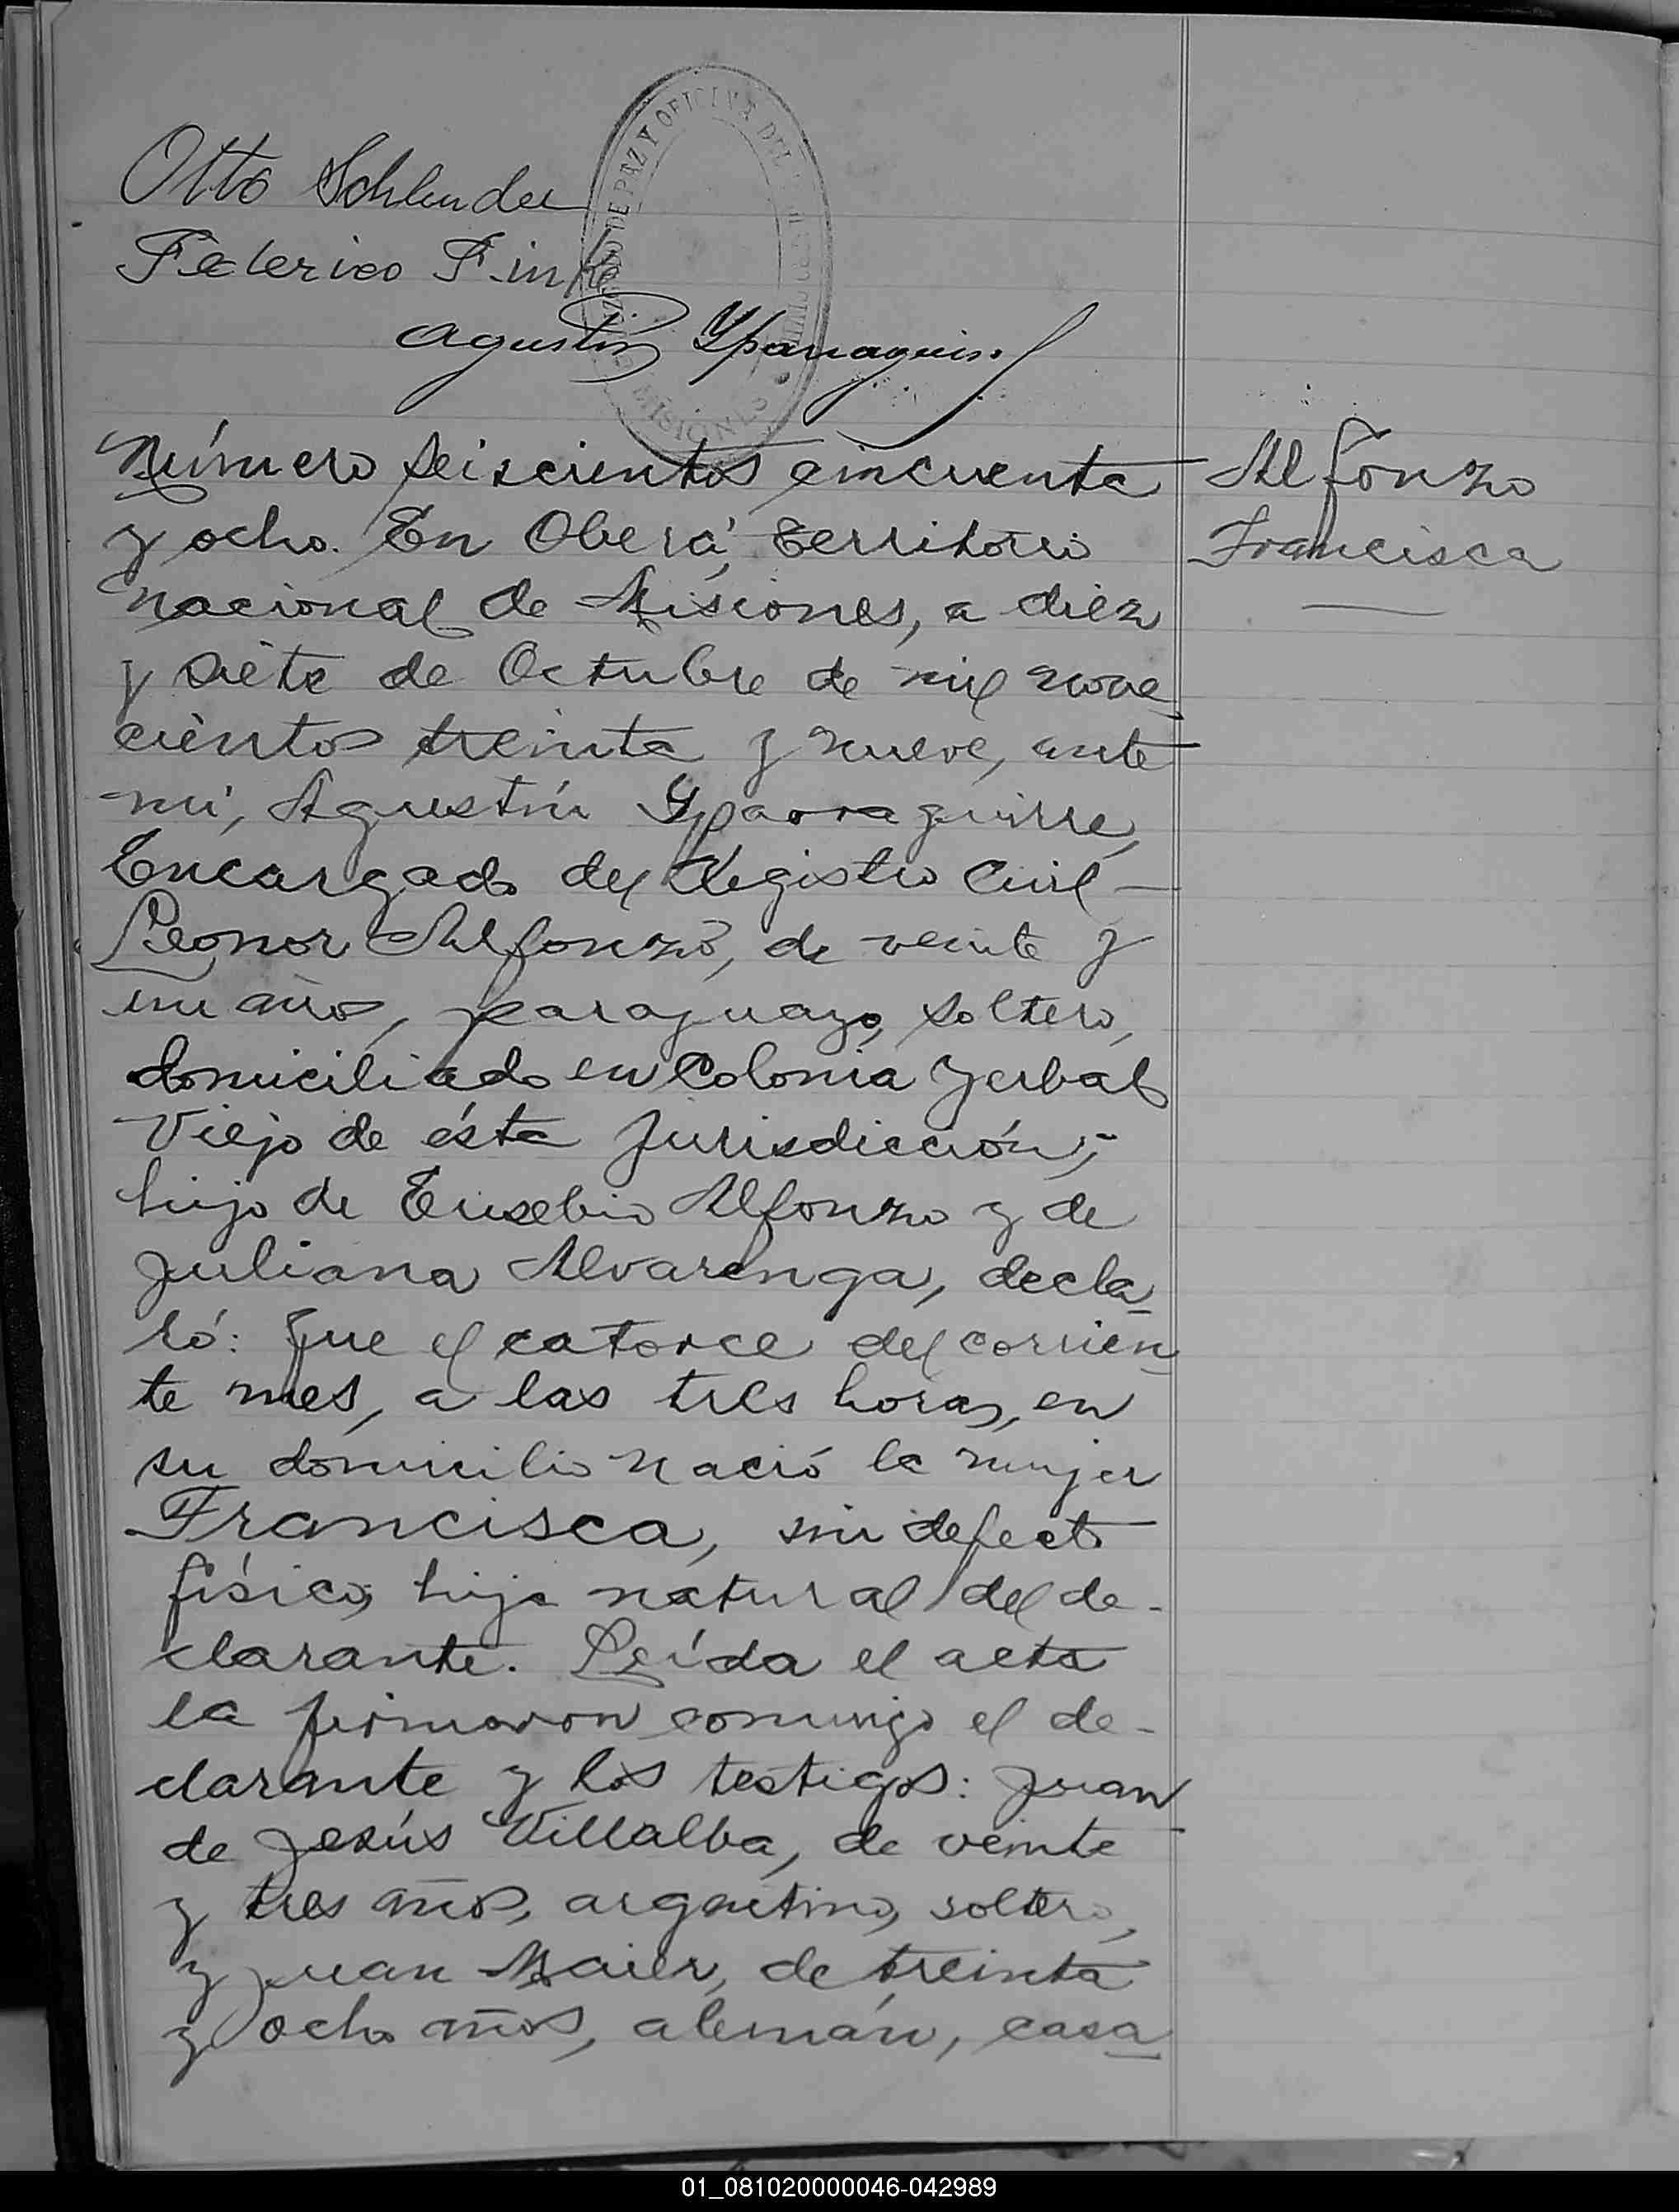 Otto Schlender
Federico Fink
Agustín Yparraguirre
JUZGADO DE PAZ Y OFICINA DEL REGISTRO CIVIL
MISIONES
Número seiscientos cincuenta
y ocho. En Oberá, territorio
nacional de Misiones, a diez
y siete de Octubre de mil nove
cientos treinta y nueve, ante
mi, Agustín Yparraguirre,
Encargado del Registro Civil
Leonor Alfonzo, de veinte y
un años, paraguayo, soltero,
domiciliado en Colonia Yerbal
Viejo de ésta jurisdicción;
hijo de Eusebio Alfonzo y de
Juliana Alvarenga, decla
ró: que el catorce del corrien
te mes, a las tres horas, en
su domicilio nació la mujer
Francisca, sin defecto
físico, hija natural del de-
clarante. Leída el acta
la firmaron conmigo el de-
clarante y los testigos: Juan
de Jesús Villalba, de veinte
y tres años, argentino, soltero,
y Juan Maier, de treinta
y ocho años, alemán, casa
Alfonzo
Francisca
01_081020000046-042989